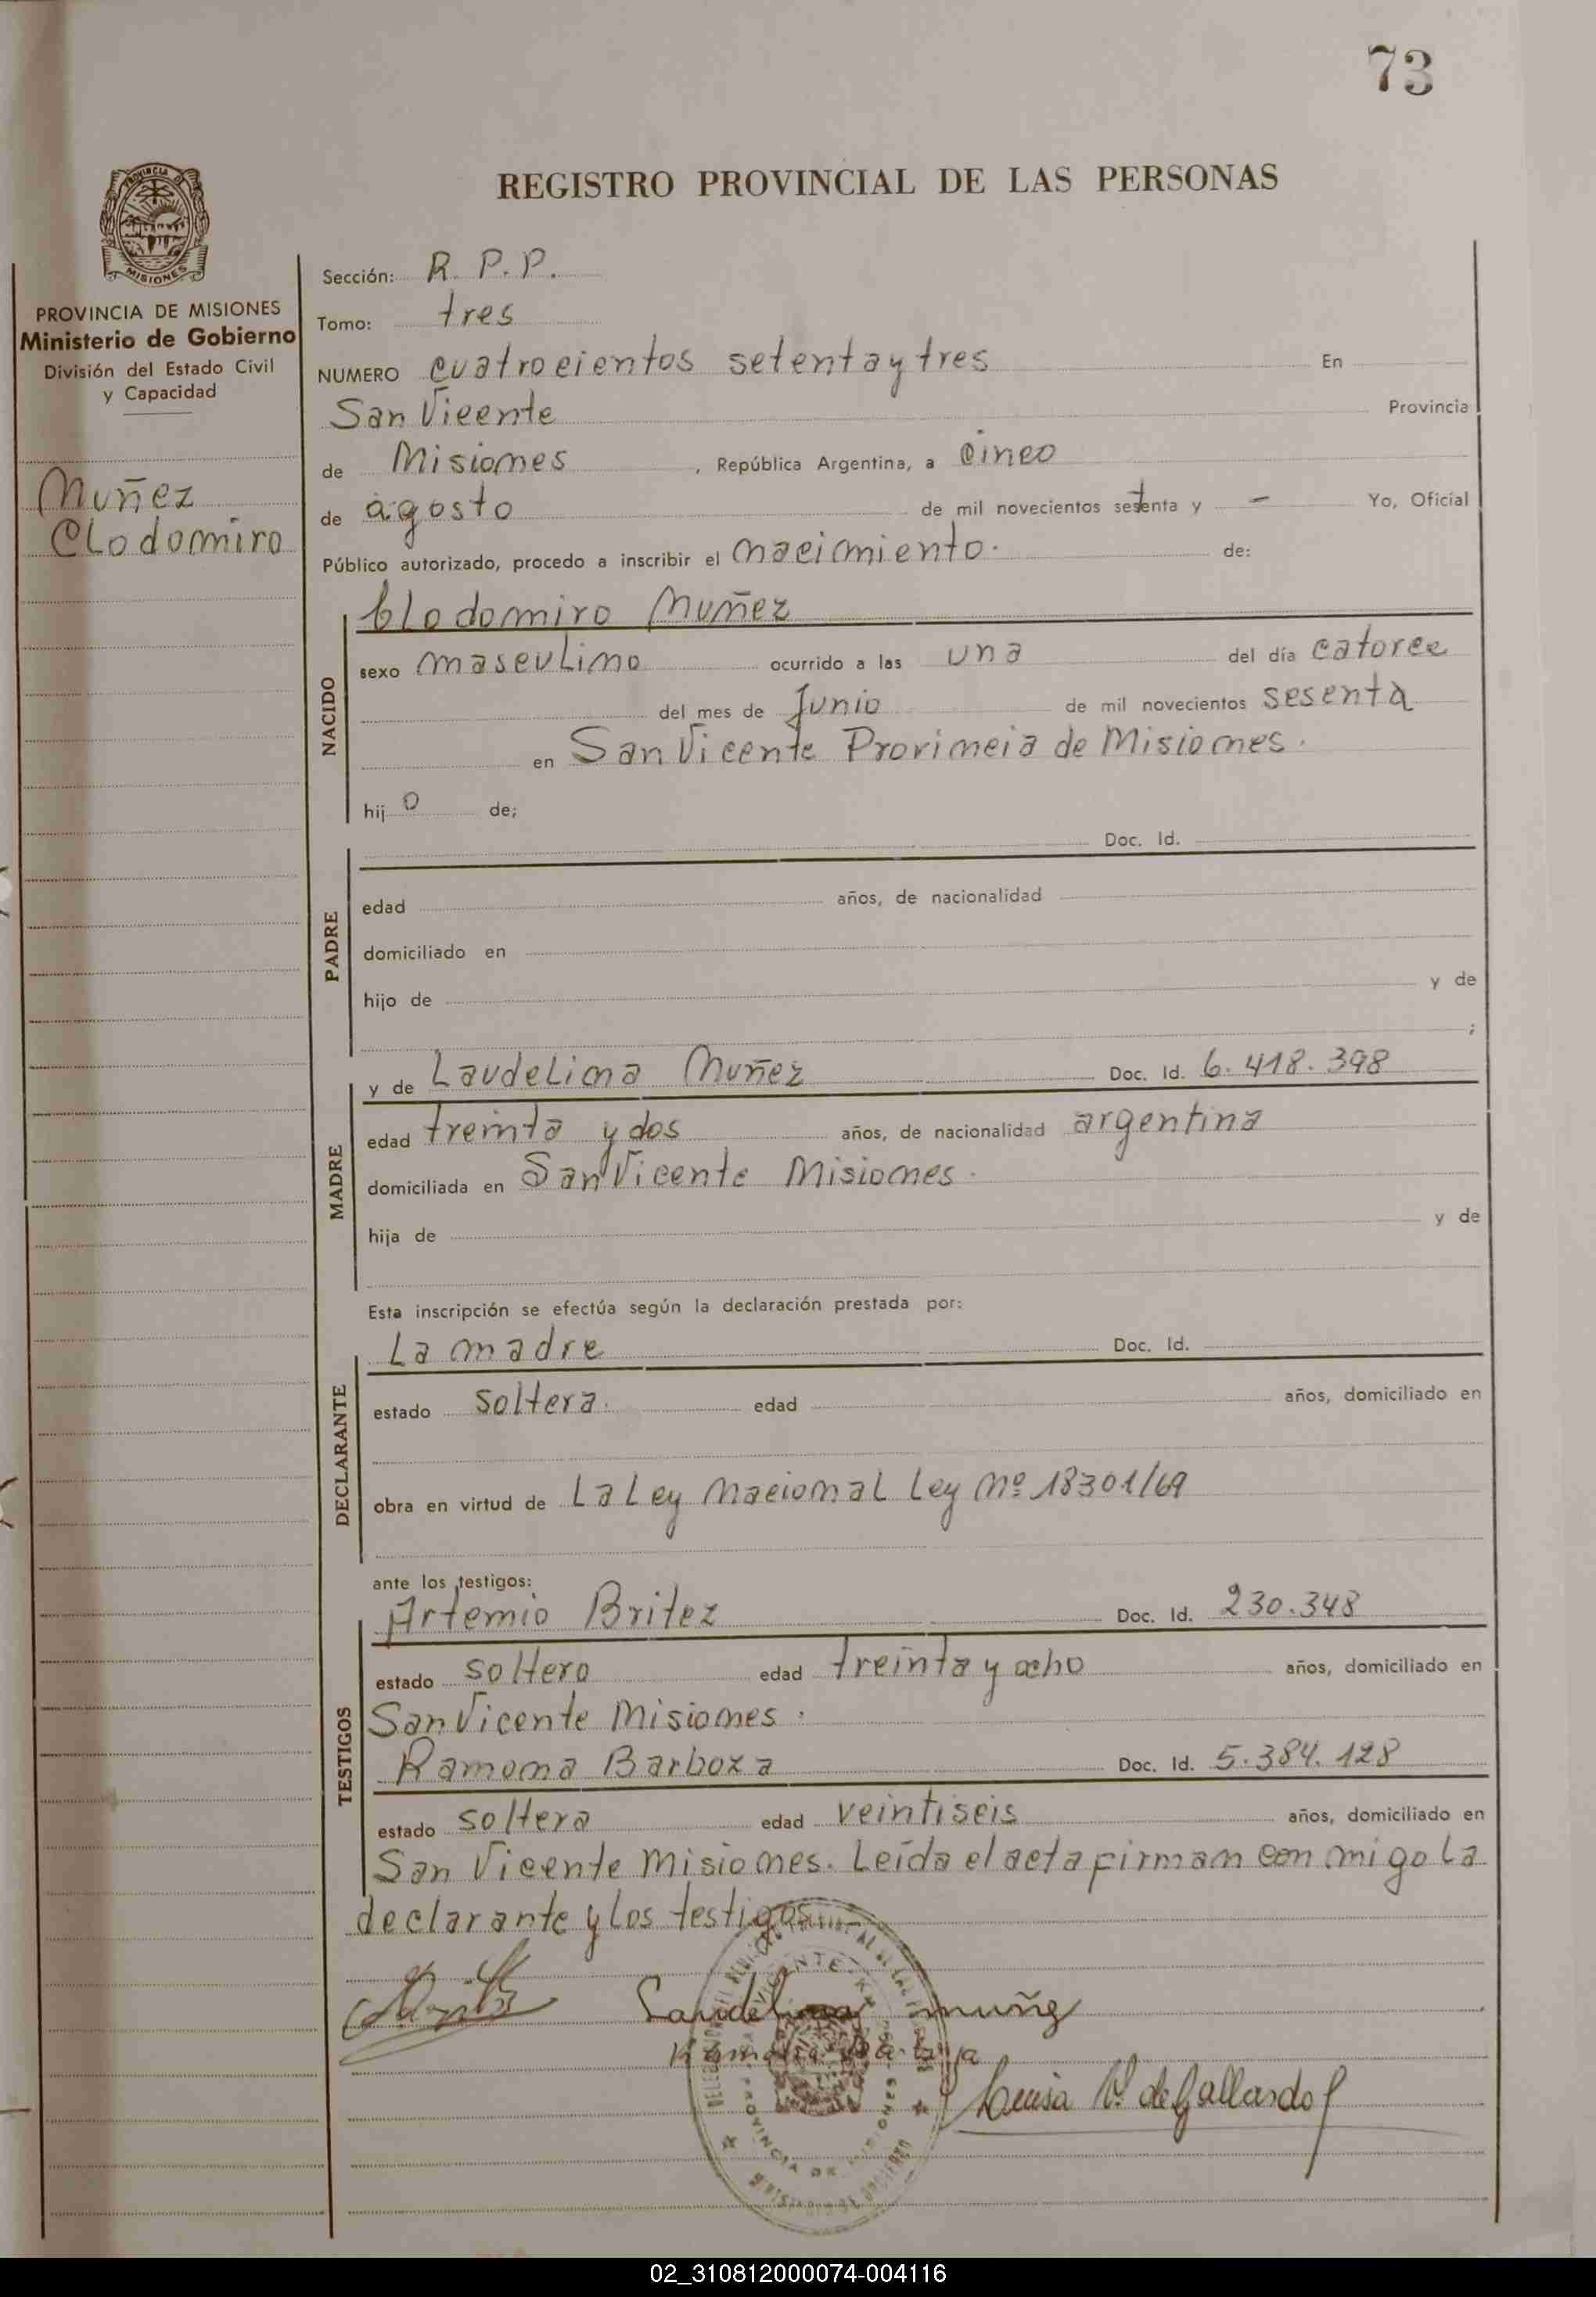 73
REGISTRO PROVINCIAL DE LAS PERSONAS
PROVINCIA DE MISIONES
Ministerio de Gobierno
División del Estado Civil
y Capacidad
Muñez
Clodomiro
Sección: R. P. P.
Tomo: tres
NUMERO cuatrocientos setenta y tres En
San Vicente Provincia
de Misiones, República Argentina, a cinco
de agosto de mil novecientos setenta y - Yo, Oficial
Público autorizado, procedo a inscribir el nacimiento. de:
NACIDO
Clodomiro Muñez
sexo masculino ocurrido a las una del día catorce
del mes de Junio de mil novecientos sesenta
en San Vicente Provincia de Misiones.
hijo de;
PADRE
Doc. Id.
edad años, de nacionalidad
domiciliado en
hijo de y de
;
MADRE
y de Laudelina Muñez Doc. Id. 6.418.398
edad treinta y dos años, de nacionalidad argentina
domiciliada en San Vicente Misiones.
hija de y de
Esta inscripción se efectúa según la declaración prestada por:
DECLARANTE
La madre Doc. Id.
estado soltera. edad años, domiciliado en
obra en virtud de La Ley Nacional Ley Nº 18301/69
ante los testigos:
TESTIGOS
Artemio Britez Doc. Id. 230.348
estado soltero edad treinta y ocho años, domiciliado en
San Vicente Misiones.
Ramona Barboza Doc. Id. 5.384.128
estado soltera edad veintiseis años, domiciliado en
San Vicente Misiones. Leída el acta firman con migo la
declarante y los testigos.
Laudelina muñez
Luisa V. de Gallardo
02_310812000074-004116